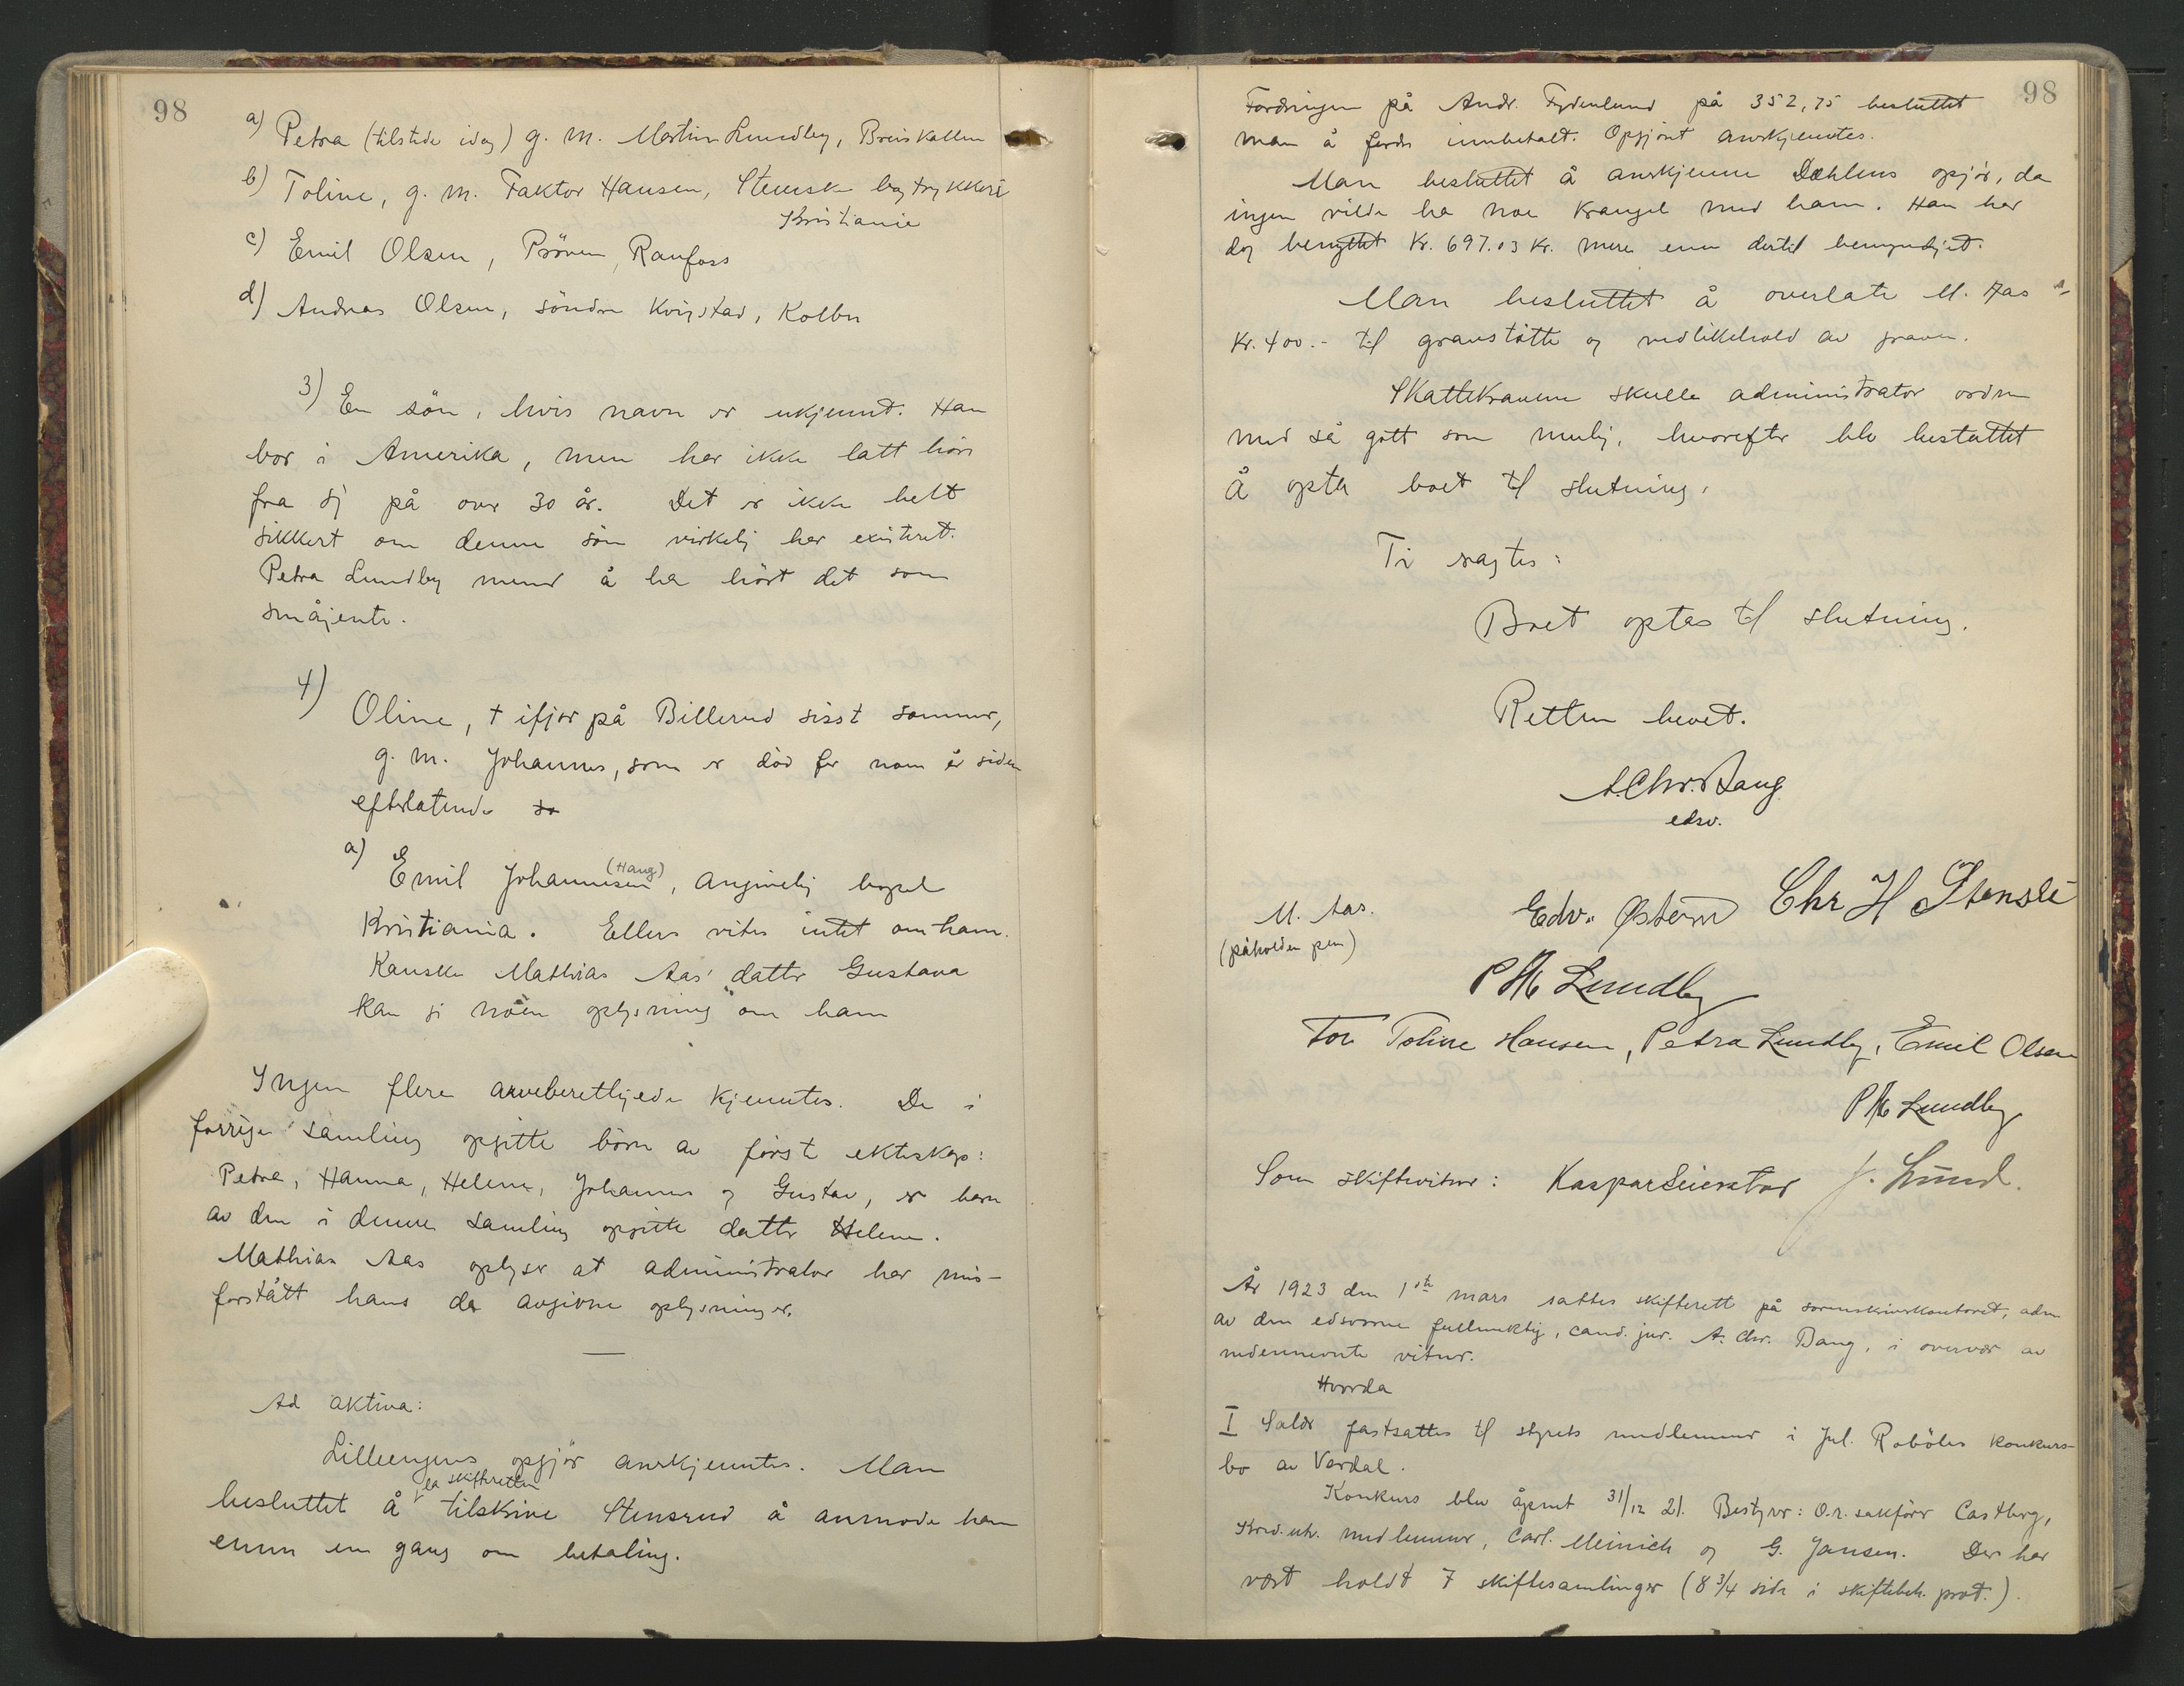 98
a) Petra (tilstede idag) g. m. Martin Lundby, Breiskallen
b) Toline, g. m. Faktor Hansen, Stenske bogtrykkeri
Kristiania
c) Emil Olsen, Prøven, Raufoss
d) Andreas Olsen, søndre Kvigstad, Kolbu
3) En søn, hvis navn er ukjennt. Han
bor i Amerika, men har ikke latt høre
fra sig på over 30 år. Det er ikke helt
sikkert om denne søn virkelig har existeret.
Petra Lundby mener å ha hørt det som
småjente.
4)
Oline, † ifjor på Billerud sisst sommer,
g. m. Johannes, som er død for noen år siden
efterlatende
a)
Emil Johannesen (Haug), angivelig bopel
Kristiania. Ellers vites intet om ham.
Kanske Mathias Aas' datter Gustava
kan gi noen oplysning om ham
Ingen flere arveberettigede kjenntes. De i
forrige samling opgitte børn av første ekteskap:
Petra, Hanna, Helene, Johannes og Gustav, er barn
av den i denne samling opgitte datter Helene.
Mathias Aas oplyser at administrator har mis-
forstått hans da avgivne oplysninger.
Ad aktiva:
Lilleengens opgjør anerkjenntes. Man
besluttet å la skifteretten tilskrive Stensrud å anmode ham
ennu en gang om betaling.
98
Fordringen på Andr. Fydenlund på 352,75 besluttet
man å forder innbetalt. Opgjøret anerkjenntes.
Man besluttet å anerkjenne Dæhlens opgjør, da
ingen vilde ha noe krangel med ham. Han har
dog benyttet Kr. 697.03 Kr. mere enn dertil bemyndiget.
Man besluttet å overlate M. Aas
Kr. 400.- til gravstøtte og vedlikehold av graven.
Skattekravene skulle administrator ordne
med så gott som mulig, hvorefter blev besluttet
å opta boet til slutning.
Ti sagtes:
Boet optas til slutning.
Retten hevet.
A. Chr. Bang
edsv.
M. Aas.
(påholden pen)
Edv. Østern Chr H Stensli
P M Lundby
For Toline Hansen, Petra Lundby, Emil Olsen
P M Lundby
Som skiftevitner: Kaspar Seierstar J. Lund.
År 1923 den 1ste mars sattes skifterett på sorenskriverkontoret, adm
av den edsvorne fullmektig, cand. jur. A. Chr. Bang, i overvær av
nedennevnte vitner.
Hvorda
I Salær fastsattes til styrets medlemmer i Jul. Robøles konkurs-
bo av Vardal.
Konkurs blev åpnet 31/12 21. Bestyrer: O.r. sakfører Castberg,
Kred.utv. medlemmer, Carl. Meinich og G. Jansen. Der har
vært holdt 7 skiftesamlinger (8 3/4 side i skiftebeh. prot.).